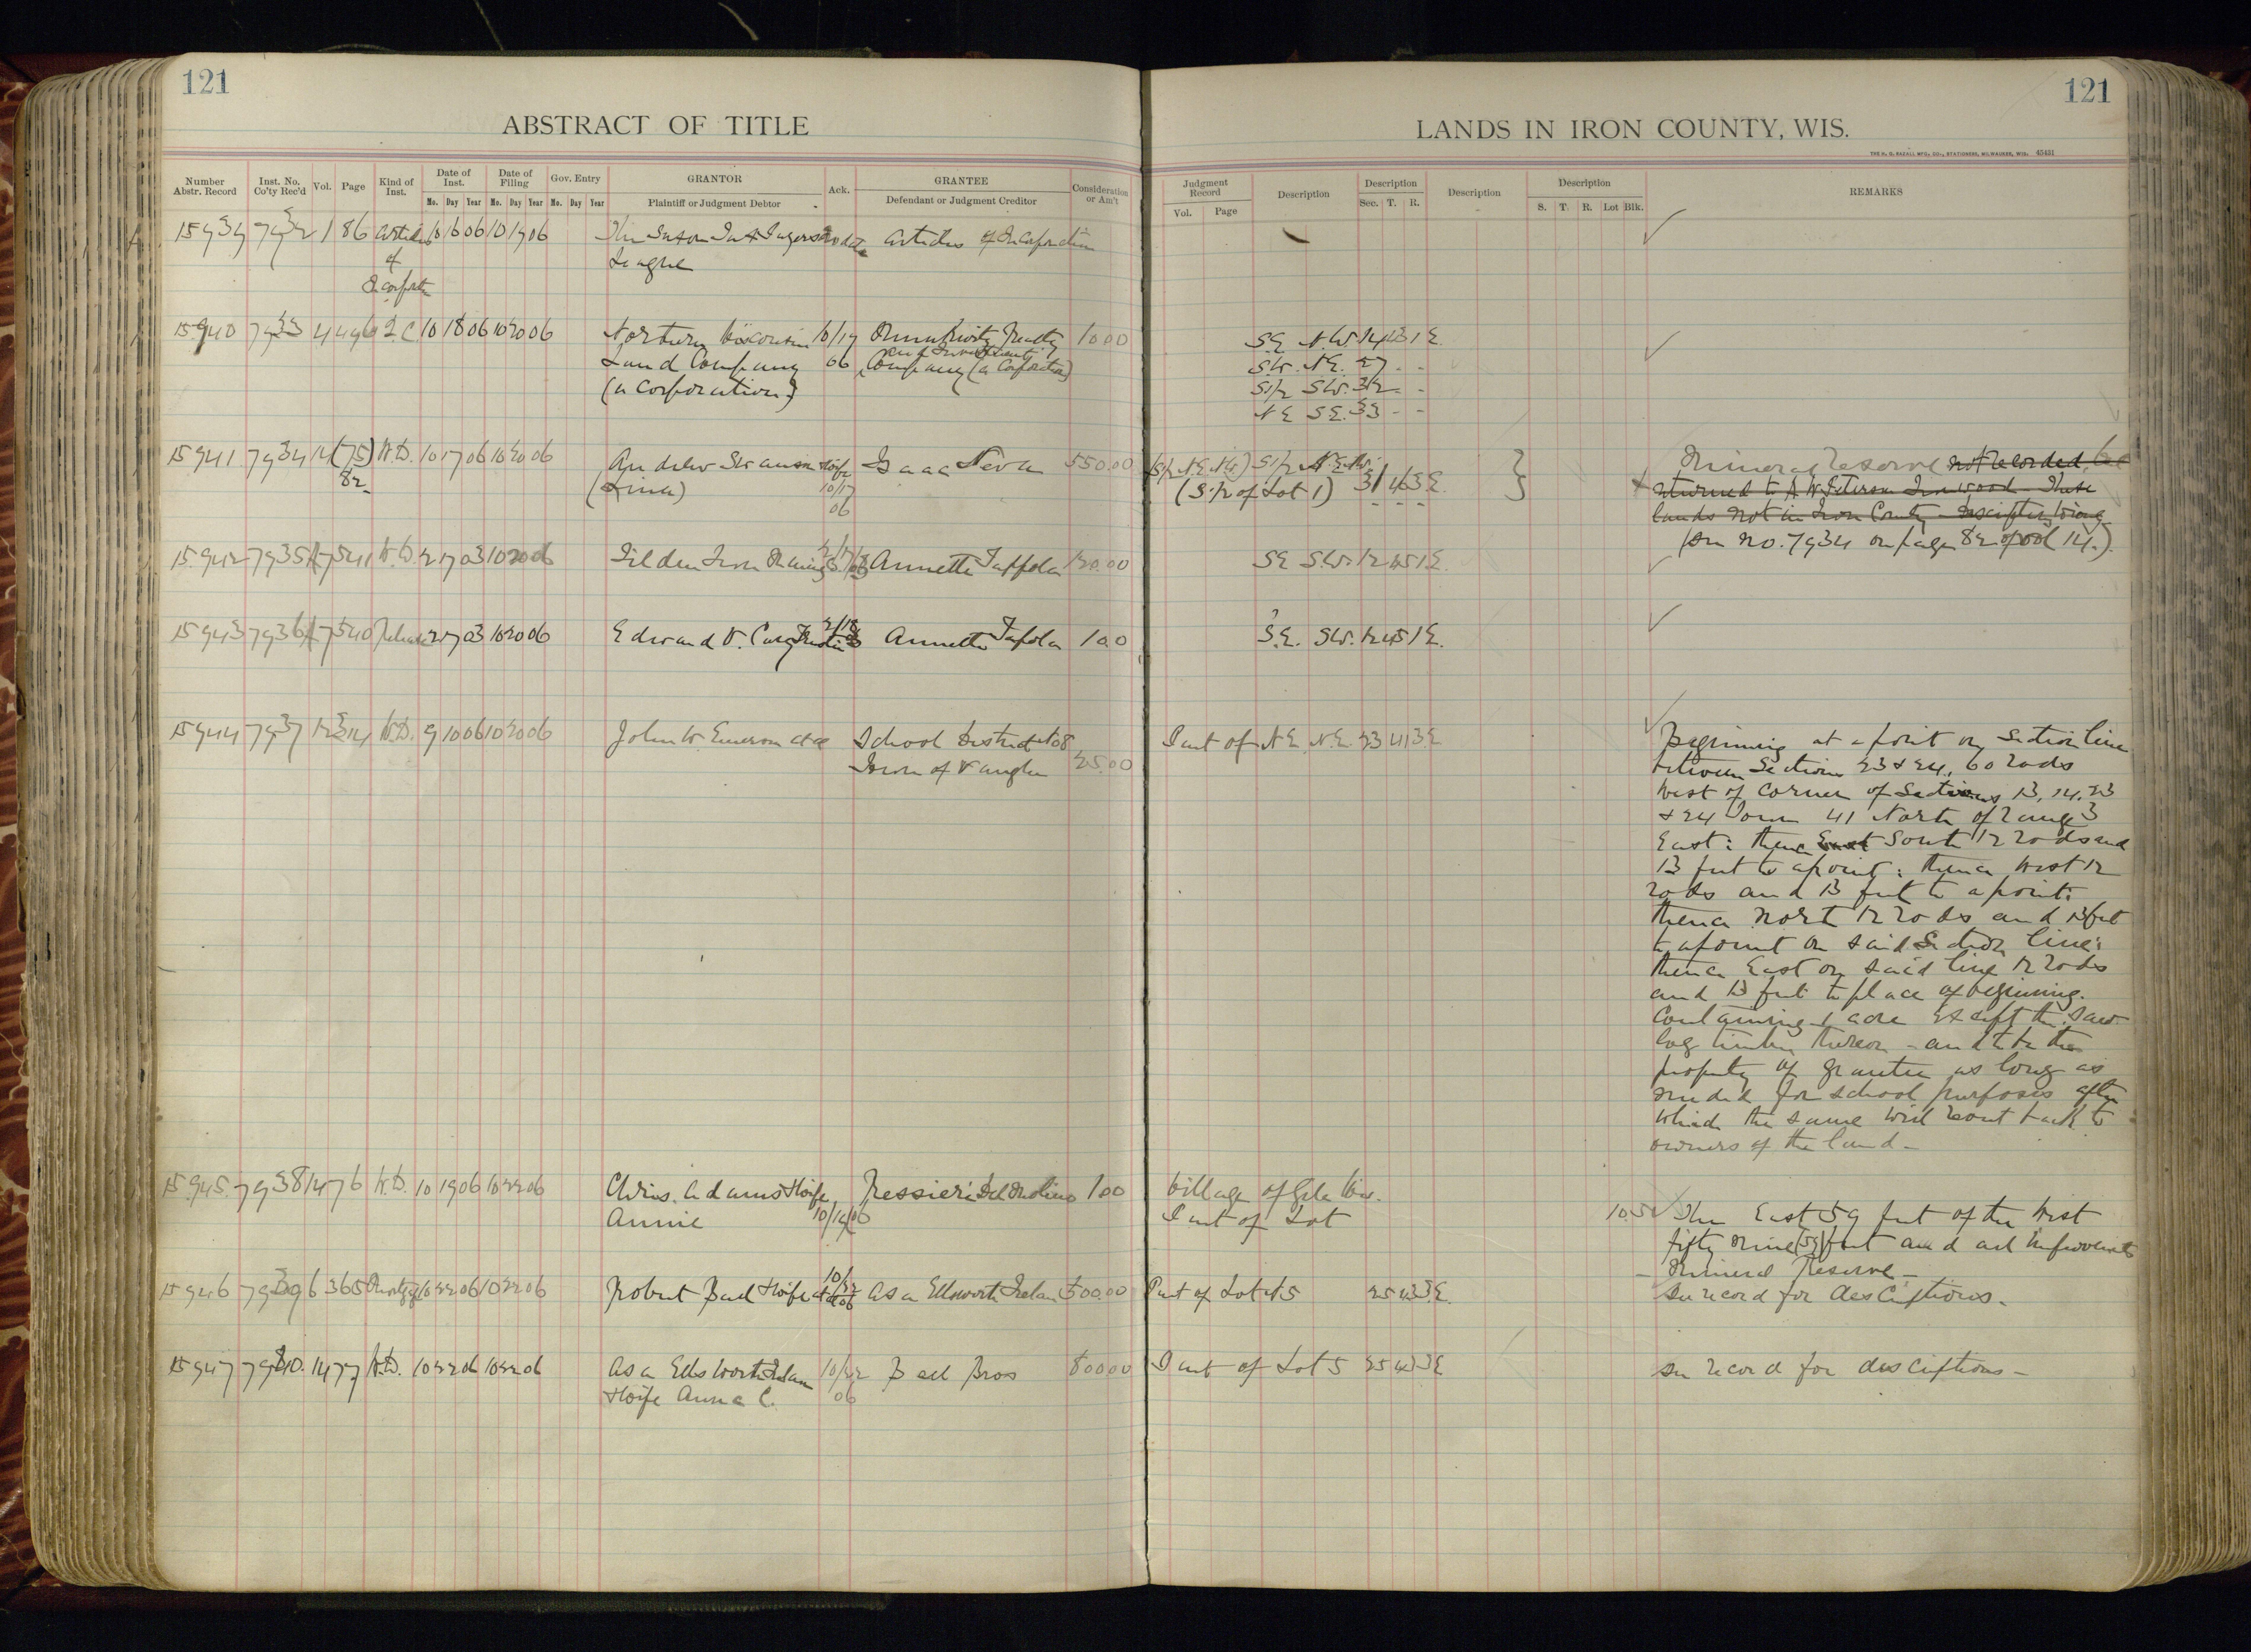 121
121
ABSTRACT OF TITLE
LANDS IN IRON COUNTY, WIS.
THE H. G. RAZALL MFG. CO., STATIONERS, MILWAUKEE, WIS. 45431
Number Abstr. Record
Inst. No. Co'ty Rec'd
Vol.
Page
Kind of Inst.
Date of Inst.
Date of Filing
Gov. Entry
GRANTOR
Ack.
GRANTEE
Consideration or Am't
Mo. Day Year Mo. Day Year Mo. Day Year
Plaintiff or Judgment Debtor
Defendant or Judgment Creditor
Judgment Record
Description
Description
Description
Description
REMARKS
Vol. Page
Sec. T. R.
S. T. R. Lot Blk.
15939 7932 1 86 Articles 10 16 06 10 19 06 The Saxon Tax Articles of Incorporation
of League
15940 7933 4 496 Q.C. 10 18 06 10 20 06 Northern Wisconsin 10/19 Realty 10 00 S.E. N.W. 14 43 1 E.
Land Company 06 Company (a Corporation) S.W. N.E. 27 - -
(a corporation) S1/2 S.W. 32 - -
N E S E. 33 - -
15941 7934 14 (75) W.D. 10 17 06 10 20 06 Andrew Swanson &wife Isaac Neva 550.00 S1/2 31 46 3 E. Mineral Reserve not recorded
82 (Lina) 10/17 (S1/2 of Lot 1) returned to A W Peterson Ironwood - These
06 lands not in Iron County - Description wrong
(See No. 7934 on page 82 of vol 14.)
15942 7935 17 541 W.D. 2 17 03 10 20 06 Tilden Iron Mining Annette Tappola 120.00 S E S.W. 12 45 1 E.
15943 7936 17 540 Release 2 17 03 10 20 06 Edward V. Cary Trustee 2/18 Annette Tapola 1 00 S.E. S.W. 12 45 1 E.
15944 7937 12 314 W.D. 9 10 06 10 20 06 John W. Emerson et al School District No 8 25.00 Part of N.E. N.E. 23 41 3 E
Town of Vaughn
Beginning at a point on Section line
between Sections 23 & 24, 60 rods
West of corner of Sections 13, 14, 23
& 24 Town 41 North of Range 3
East: thence East South 12 rods and
13 feet to a point: thence West 12
rods and 13 feet to a point:
thence North 12 rods and 13 feet
to a point on said Section line:
thence East on said line 12 rods
and 13 feet to place of beginning.
Containing 1 acre except the saw
log timber thereon - and to be the
property of grantee as long as
needed for school purposes after
which the same will revert back to
owners of the land -
15945 7938 14 76 W.D. 10 19 06 10 22 06 Chris. Adams &wife 1 00 Village of Gile Wis.
Annie 10/19/06 Part of Lot 10 5 The East 59 feet of the West
fifty nine (59) feet and all improvements
- Mineral Reserve -
15946 7939 6 365 Mortgage 10 22 06 10 22 06 Robert Ball &wife et al 10/22 06 Asa Ellsworth 500.00 Part of Lot 5 25 43 3 E. See record for descriptions.
15947 7940 14 77 W.D. 10 22 06 10 22 06 Asa Ellsworth 10/22 Ball Bros 800 00 Part of Lot 5 25 43 3 E See record for descriptions -
&wife Anna C. 06